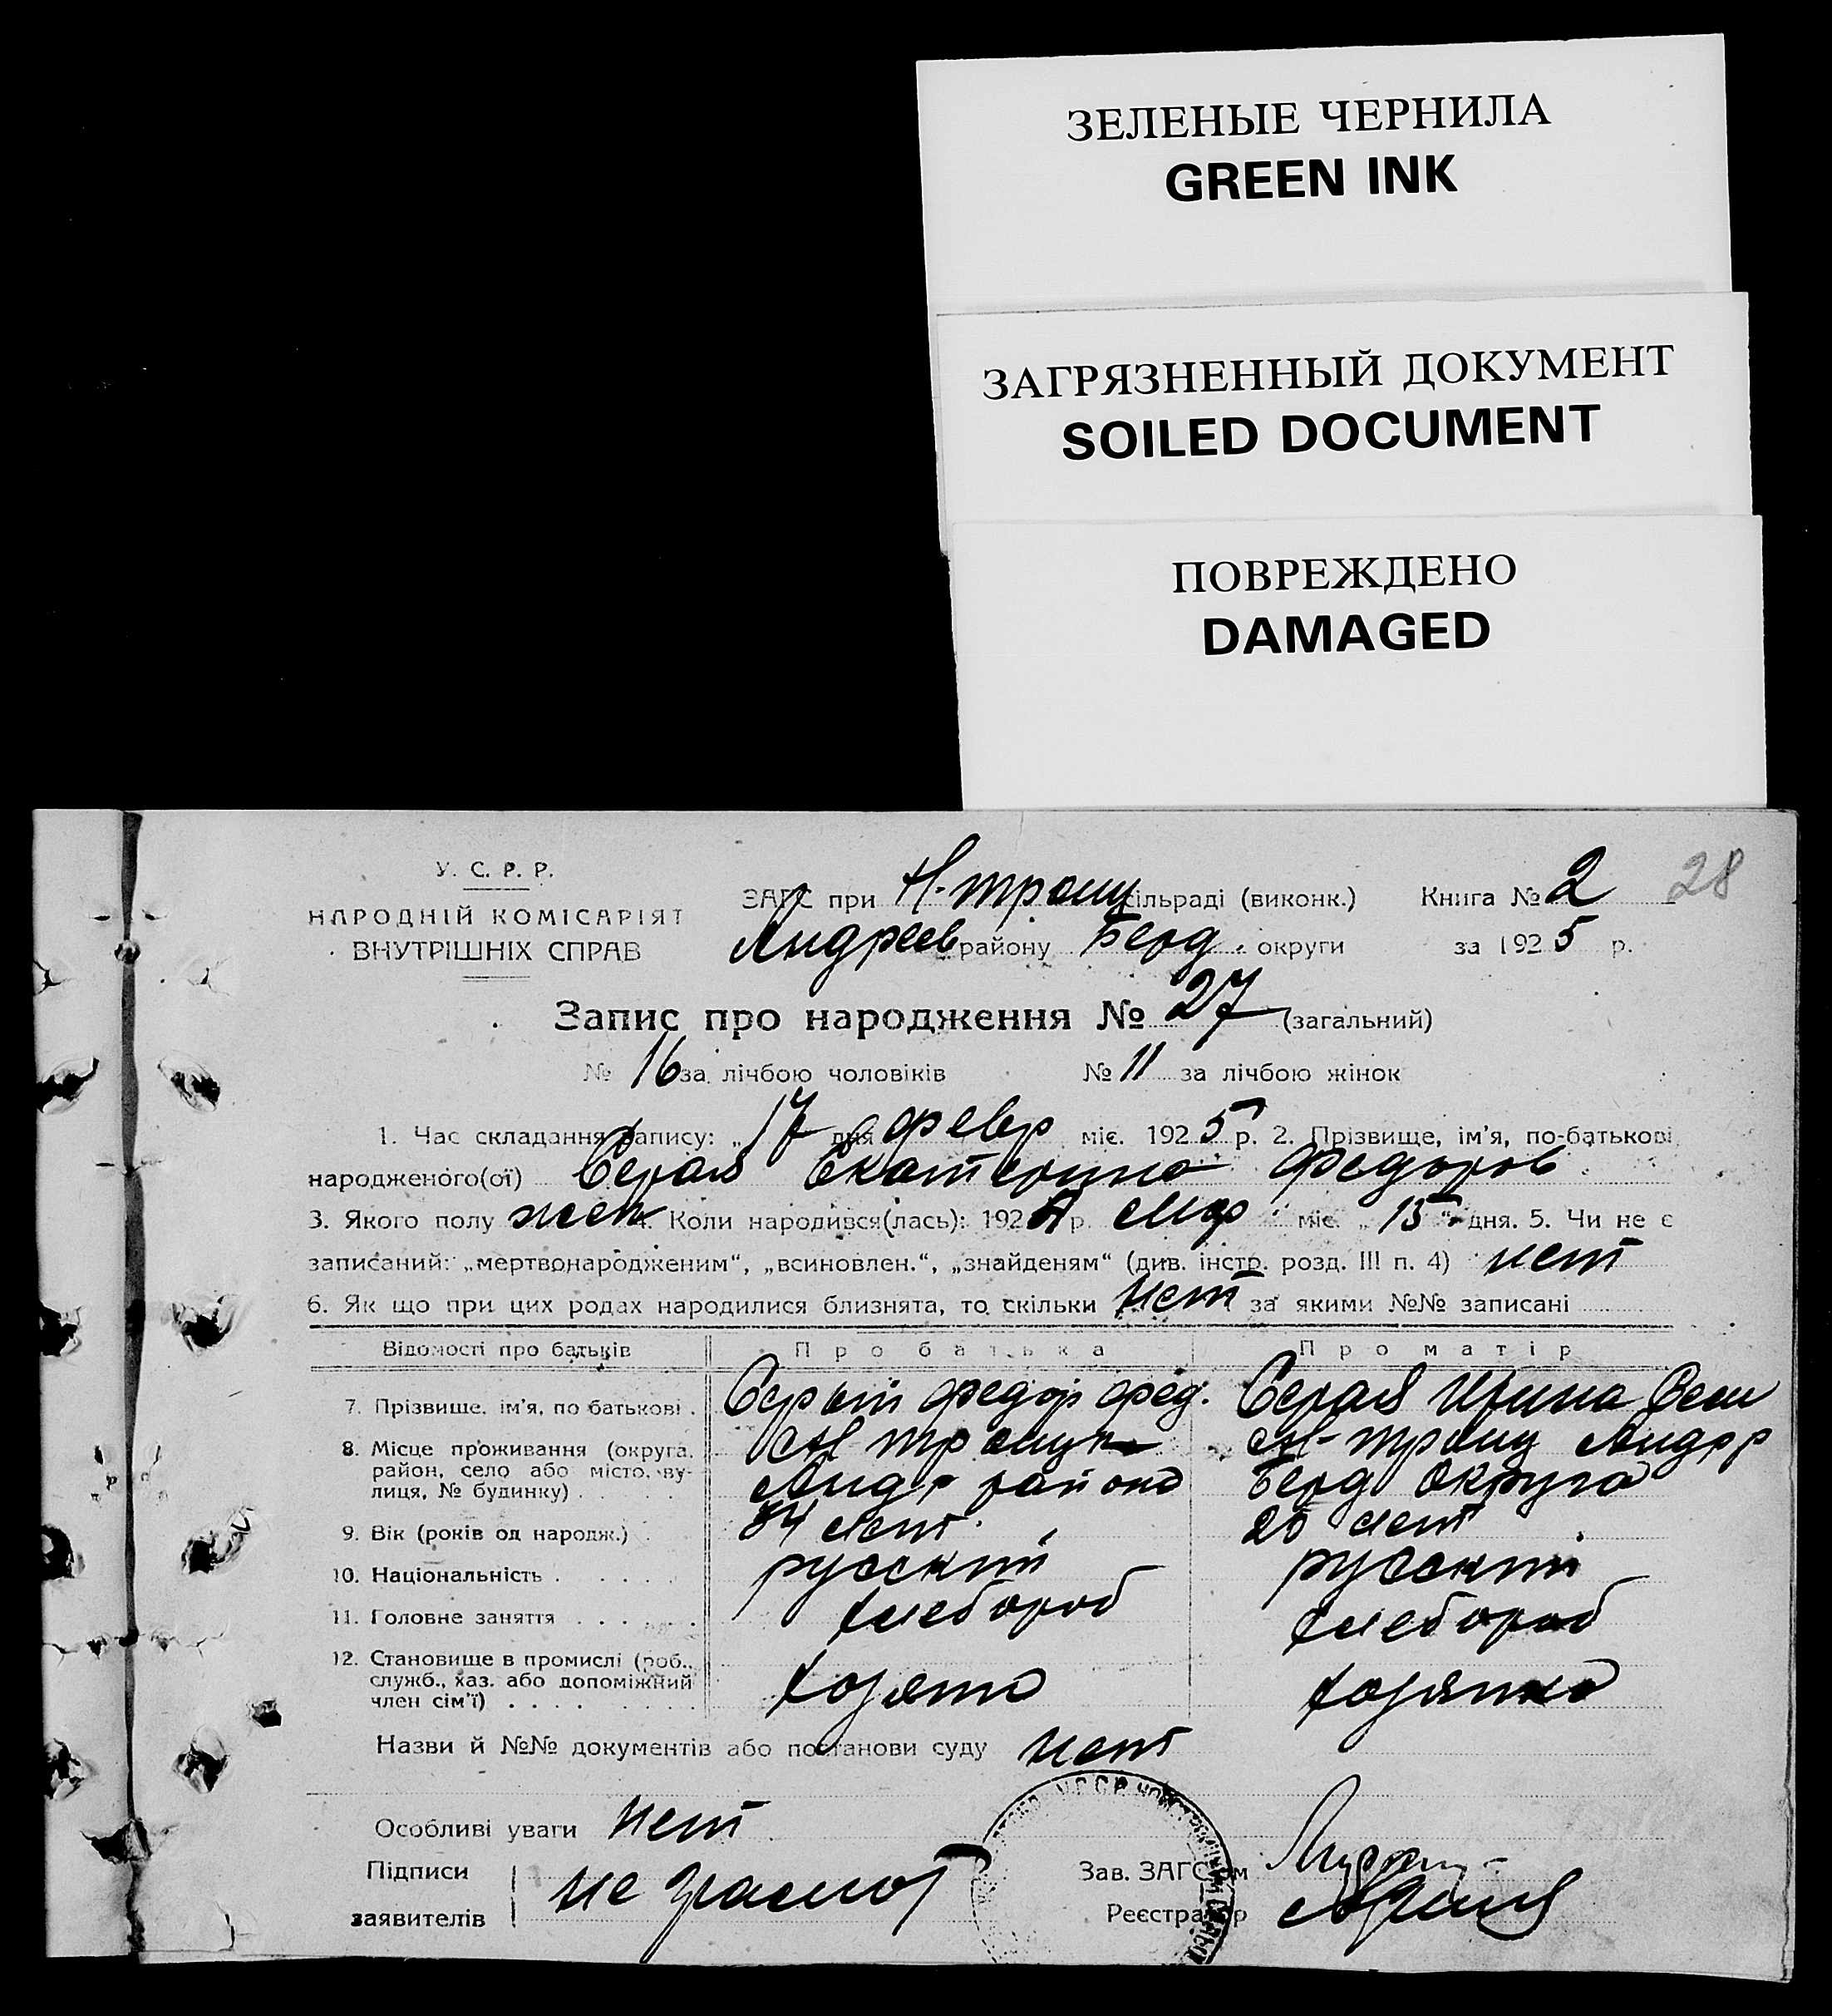 ЗЕЛЕНЫЕ ЧЕРНИЛА
GREEN INK
ЗАГРЯЗНЕННЫЙ ДОКУМЕНТ
SOILED DOCUMENT
ПОВРЕЖДЕНО
DAMAGED
У. С. Р. Р.
НАРОДНІЙ КОМІСАРІЯТ
ВНУТРІШНІХ СПРАВ
ЗАГС при Н-троиц сільраді (виконк.) Книга № 2 28
Андреев району Берд. округи за 1925 р.
Запис про народження № 27 (загальний)
№ 16 за лічбою чоловіків № 11 за лічбою жінок
1. Час складання запису: „17 дня февр міс. 1925 р. 2. Прізвище, ім'я, по-батькові
народженого(ої) Серая Екатерина Федоров
3. Якого полу жен 4. Коли народився(лась): 192 р. міс. „15" дня. 5. Чи не є
записаний: „мертвонародженим", „всиновлен.", „знайденям" (див. інстр. розд. III п. 4) нет
6. Як що при цих родах народилися близнята, то скільки нет за якими №№ записані
Відомості про батьків Про батька Про матір
7. Прізвище, ім'я, по батькові . Серый Федор Фед. Серая Ирина
8. Місце проживання (округа, Н троицк Н-троиц Андр р
район, село або місто, ву- Андр района Берд округа
лиця, № будинку) . . . .
9. Вік (років од народж.) . лет лет
10. Національність . . . . . русский русский
11. Головне заняття . . . . . хлебороб хлебороб
12. Становище в промислі (роб.,
служб., хаз. або допоміжний хозяин хозяйка
член сім'ї) . . . . . . . .
Назви й №№ документів або постанови суду нет
Особливі уваги нет
Підписи не грамот Зав. ЗАГС'ом
заявителів Реєстратор